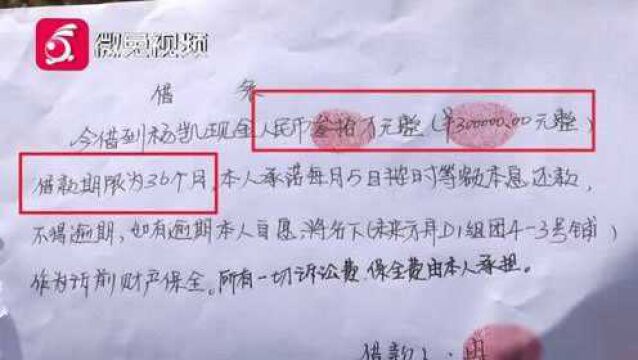 微兔视频
借 条
今借到杨凯现金人民币叁拾万元整(¥300000.00元整)
借款期限为36个月,本人承诺每月5日按时等额本息还款,
不得逾期,如有逾期本人自愿将名下(未来方舟D1组团4-3号铺)
作为诉前财产保全。所有一切诉讼费、保全费由本人承担。
借款人: